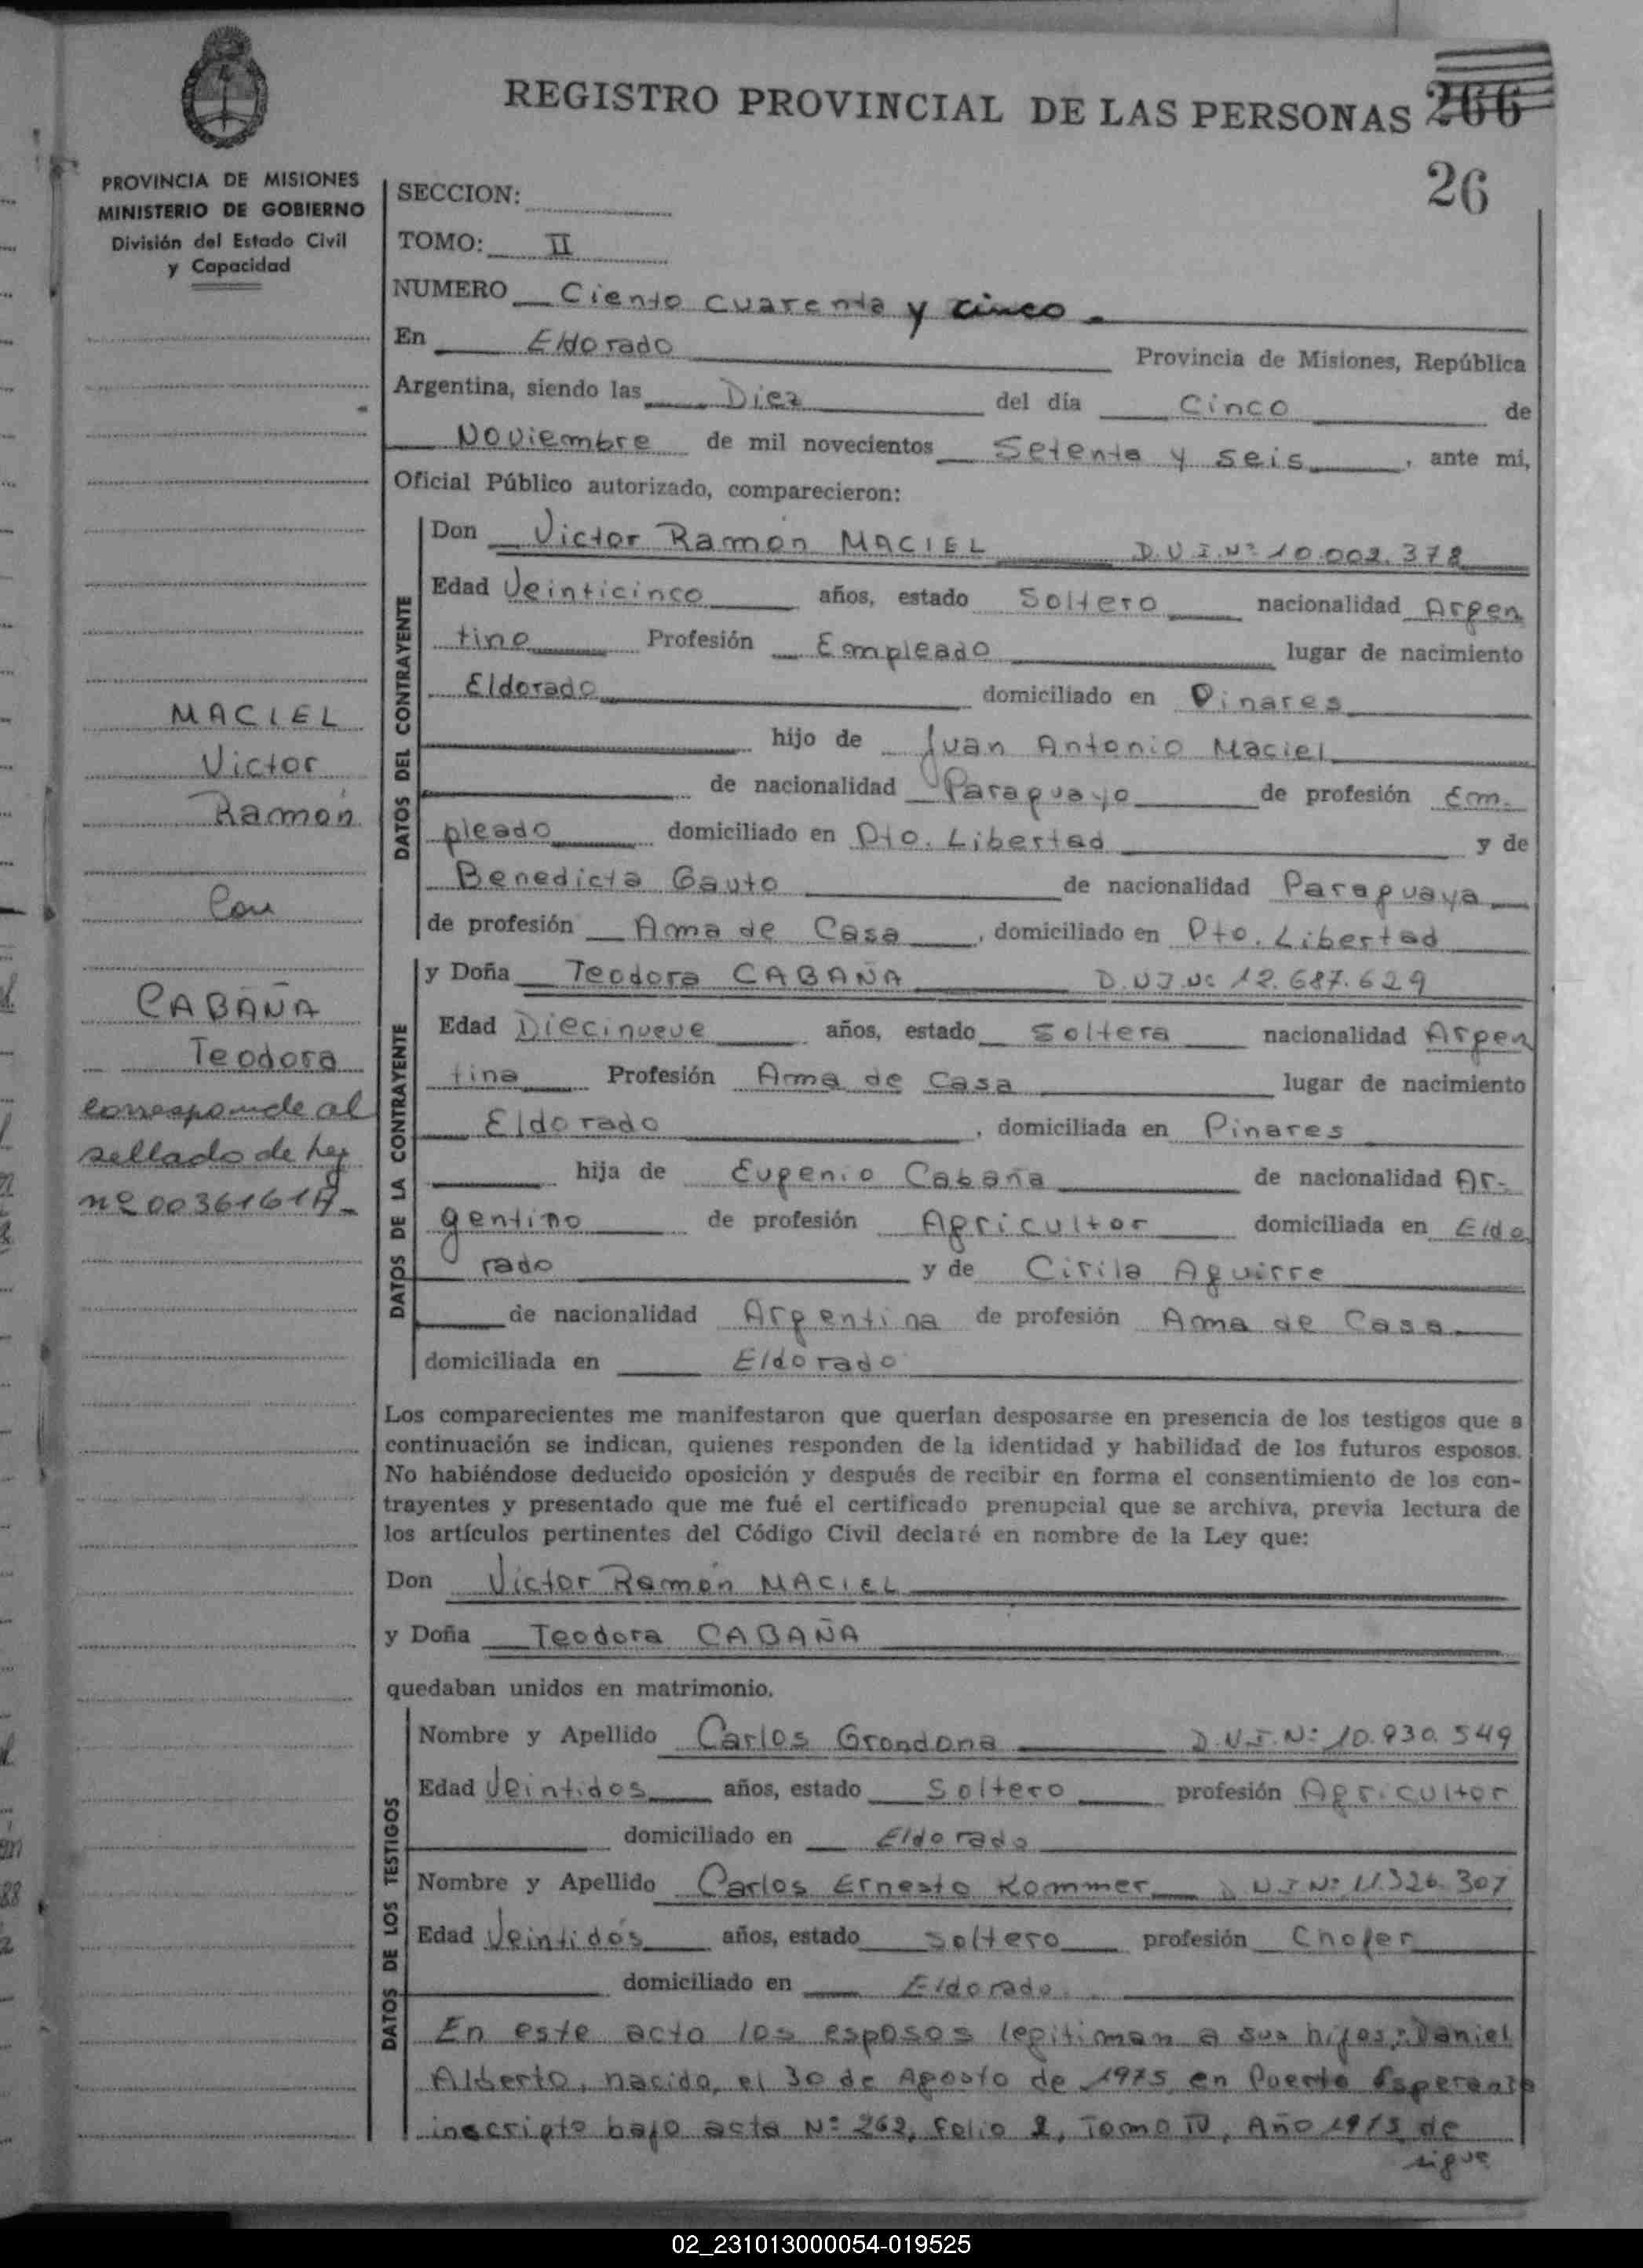 REGISTRO PROVINCIAL DE LAS PERSONAS 266
26
PROVINCIA DE MISIONES
MINISTERIO DE GOBIERNO
División del Estado Civil
y Capacidad
SECCION:
TOMO: II
NUMERO Ciento cuarenta y cinco.
En Eldorado Provincia de Misiones, República
Argentina, siendo las Diez del día Cinco de
Noviembre de mil novecientos Setenta y seis, ante mi,
Oficial Público autorizado, comparecieron:
MACIEL
Victor
Ramón
Con
CABAÑA
Teodora
corresponde al
sellado de ley
nº 00361617-
DATOS DEL CONTRAYENTE
Don Victor Ramón MACIEL D.N.I.Nº 10.002.378
Edad Veinticinco años, estado Soltero nacionalidad Argen
tino Profesión Empleado lugar de nacimiento
Eldorado domiciliado en Pinares
hijo de Juan Antonio Maciel
de nacionalidad Paraguayo de profesión Em-
pleado domiciliado en Pto. Libertad y de
Benedicta Gauto de nacionalidad Paraguaya
de profesión Ama de Casa, domiciliado en Pto. Libertad
DATOS DE LA CONTRAYENTE
y Doña Teodora CABAÑA D.N.I Nº 12.687.629
Edad Diecinueve años, estado Soltera nacionalidad Argen
tina Profesión Ama de Casa lugar de nacimiento
Eldorado, domiciliada en Pinares
hija de Eugenio Cabaña de nacionalidad Ar-
gentino de profesión Agricultor domiciliada en Eldo
rado y de Cirila Aguirre
de nacionalidad Argentina de profesión Ama de Casa
domiciliada en Eldorado
Los comparecientes me manifestaron que querían desposarse en presencia de los testigos que a
continuación se indican, quienes responden de la identidad y habilidad de los futuros esposos.
No habiéndose deducido oposición y después de recibir en forma el consentimiento de los con-
trayentes y presentado que me fué el certificado prenupcial que se archiva, previa lectura de
los artículos pertinentes del Código Civil declaré en nombre de la Ley que:
Don Victor Ramón MACIEL
y Doña Teodora CABAÑA
quedaban unidos en matrimonio.
DATOS DE LOS TESTIGOS
Nombre y Apellido Carlos Grondona D.N.I.Nº 10.930.549
Edad Veintidos años, estado Soltero profesión Agricultor
domiciliado en Eldorado
Nombre y Apellido Carlos Ernesto Kommer D N I Nº 11.326.307
Edad Veintidós años, estado soltero profesión Chofer
domiciliado en Eldorado
En este acto los esposos legitiman a sus hijos: Daniel
Alberto, nacido, el 30 de Agosto de 1975, en Puerto Esperanza
inscripto bajo acta Nº 262, Folio 2, Tomo IV, Año 1975 de
sigue
02_231013000054-019525